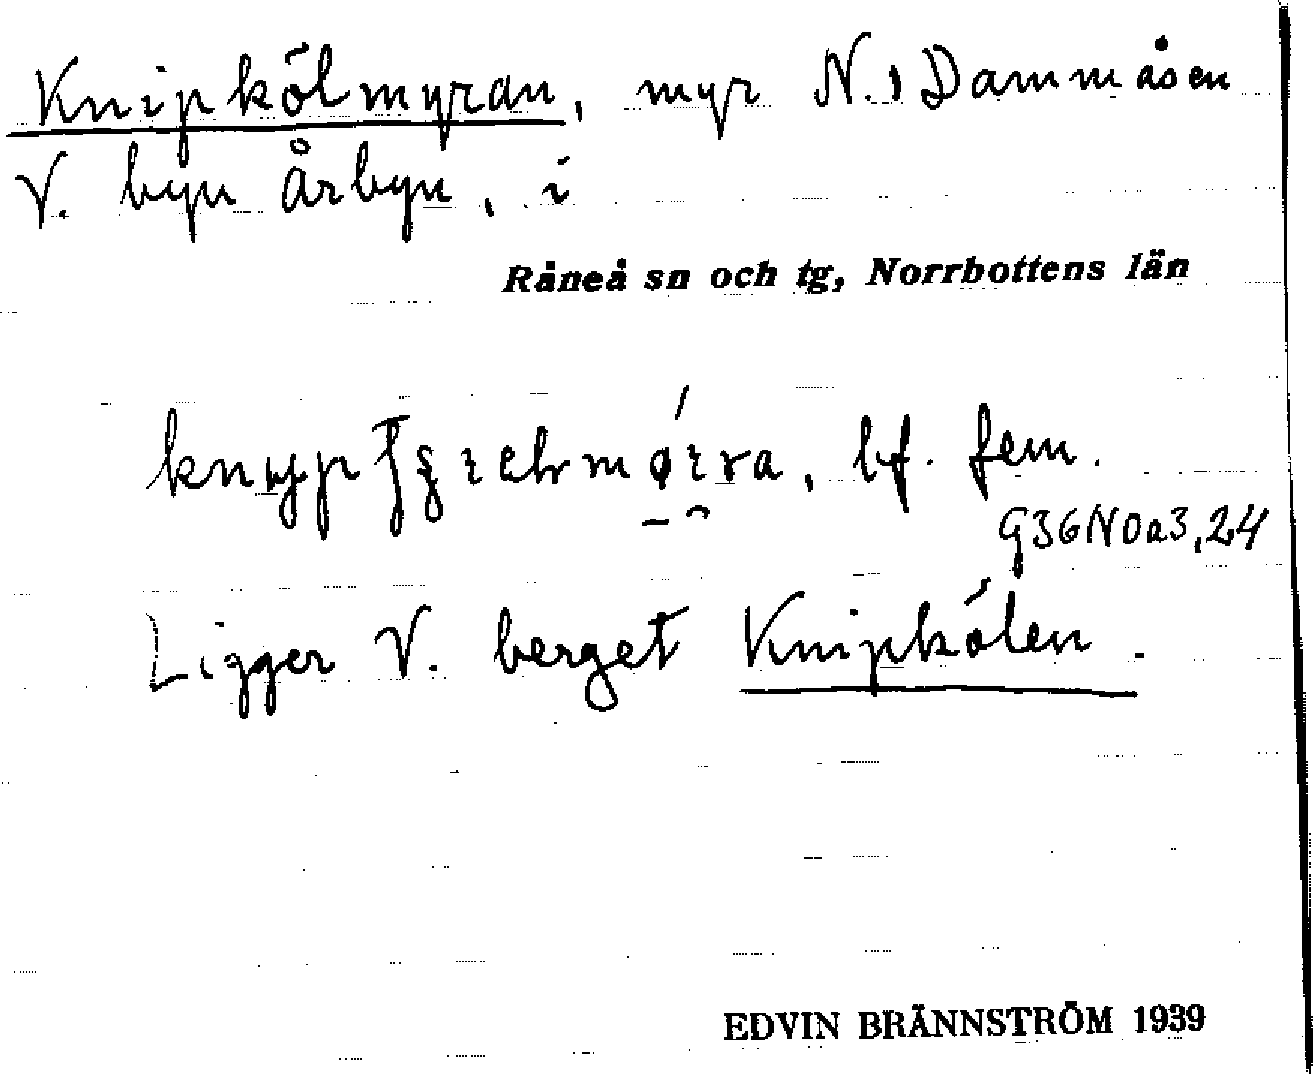 Knipkölmyran, myr N. Dammåsen
V. byn Årbyn, i
Råneå sn och tg, Norrbottens län
bf. fem.
G36NOa3,24
Ligger V. berget Knipkölen.
EDVIN BRÄNNSTRÖM 1939